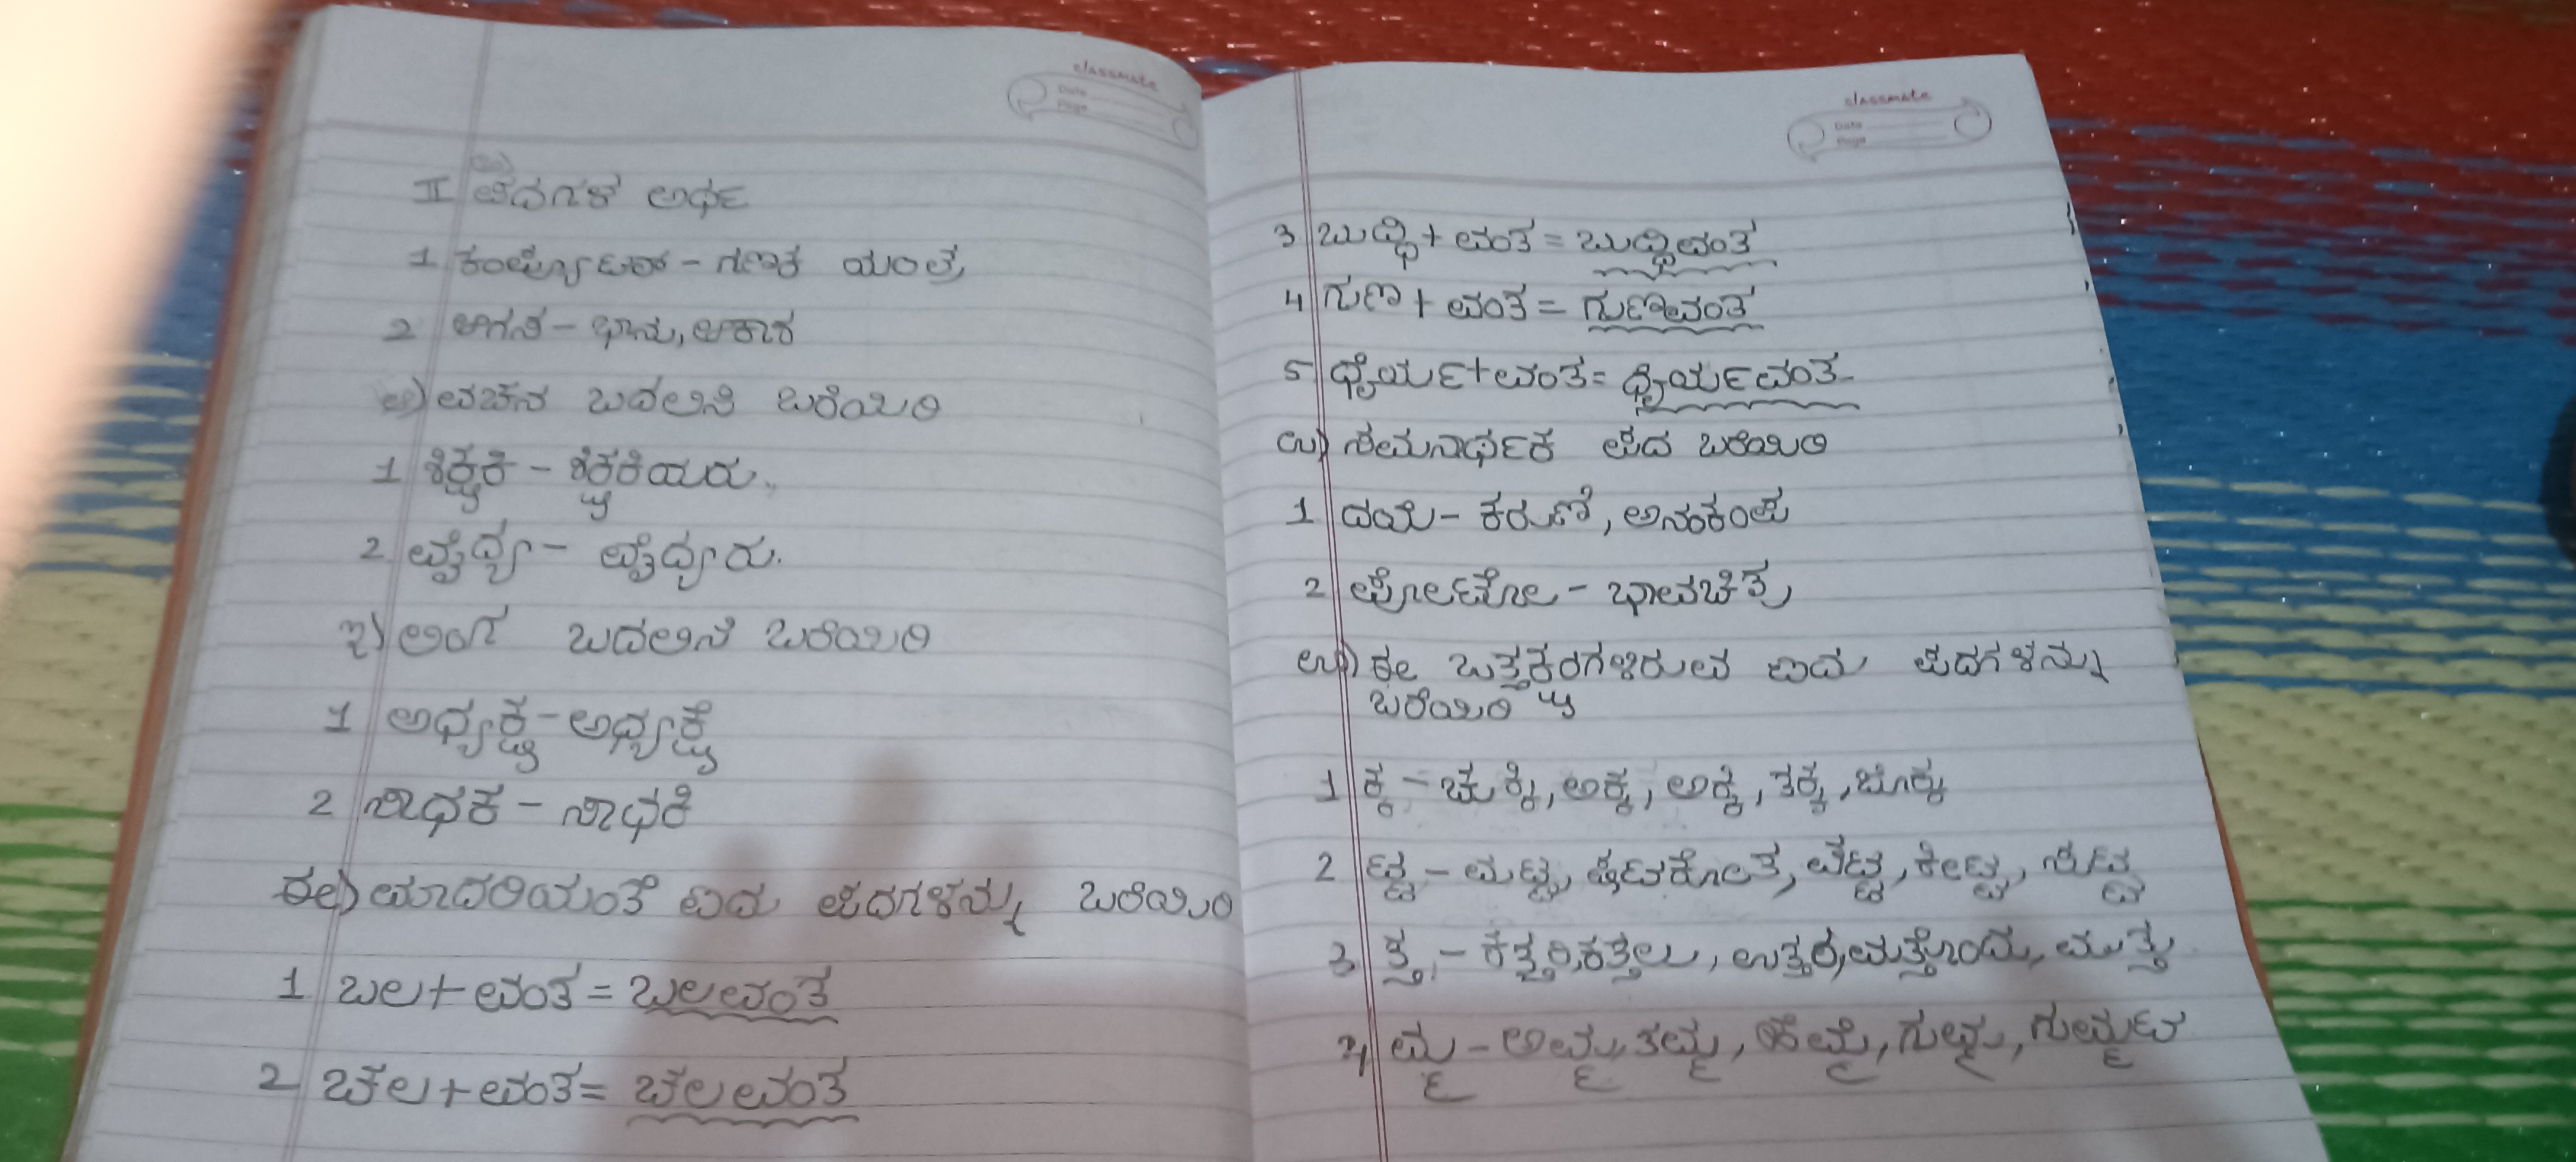 classmate
Date
Page
II ಪದಗಳ ಅರ್ಥ
1 ಕಂಪ್ಯೂಟರ್ - ಗಣಕ ಯಂತ್ರ
2 ಆಗಸ - ಭಾನು, ಆಕಾಶ
ಅ) ವಚನ ಬದಲಿಸಿ ಬರೆಯಿರಿ
1 ಶಿಕ್ಷಕಿ - ಶಿಕ್ಷಕಿಯರು.
2 ವೈದ್ಯ - ವೈದ್ಯರು.
ಇ) ಲಿಂಗ ಬದಲಿಸಿ ಬರೆಯಿರಿ
1 ಅಧ್ಯಕ್ಷ - ಅಧ್ಯಕ್ಷೆ
2 ಸಾಧಕ - ಸಾಧಕಿ
ಈ) ಮಾದರಿಯಂತೆ ಐದು ಪದಗಳನ್ನು ಬರೆಯಿರಿ
1 ಬಲ + ವಂತ = ಬಲವಂತ
2 ಛಲ + ವಂತ = ಛಲವಂತ
classmate
Date
Page
3 ಬುದ್ಧಿ + ವಂತ = ಬುದ್ಧಿವಂತ
4 ಗುಣ + ವಂತ = ಗುಣವಂತ
5 ಧೈರ್ಯ + ವಂತ = ಧೈರ್ಯವಂತ
ಉ) ಸಮನಾರ್ಥಕ ಪದ ಬರೆಯಿರಿ
1 ದಯೆ - ಕರುಣೆ, ಅನುಕಂಪ
2 ಪೋಟೋ - ಭಾವಚಿತ್ರ
ಊ) ಈ ಒತ್ತಕ್ಷರಗಳಿರುವ ಐದು ಪದಗಳನ್ನು
ಬರೆಯಿರಿ
1 ಕ್ಕ - ಚುಕ್ಕಿ, ಅಕ್ಕ, ಅಕ್ಕಿ, ತಕ್ಕ, ಬೆಕ್ಕು
2 ಟ್ಟ - ಮಟ್ಟ, ಬೆಟ್ಟ, ಕೆಟ್ಟ,
3 ತ್ತ - ಕತ್ತರಿ, ಕತ್ತಲು, ಉತ್ತರ, ಮತ್ತೊಂದು, ಮುತ್ತು
4 ಮ್ಮ - ಅಮ್ಮ, ತಮ್ಮ, ಹೆಮ್ಮೆ, ಗುಮ್ಮ, ಗುಮ್ಮಟ